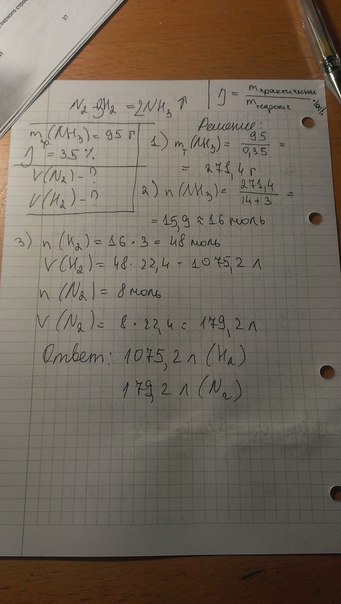 37
N₂ + 3H₂ = 2NH₃ ↑
η = m практически / m теоретич · 100%
m пр.(NH₃) = 95 г
η = 35 %
V(N₂) - ?
V(H₂) - ?
Решение:
1) m т (NH₃) = 95 / 0,35 =
= 271,4 г
2) n (NH₃) = 271,4 / 14+3 =
= 15,9 ≈ 16 моль
3) n (H₂) = 16 · 3 = 48 моль
V (H₂) = 48 · 22,4 = 1075,2 л
n (N₂) = 8 моль
V (N₂) = 8 · 22,4 = 179,2 л
Ответ: 1075,2 л (H₂)
179,2 л (N₂)